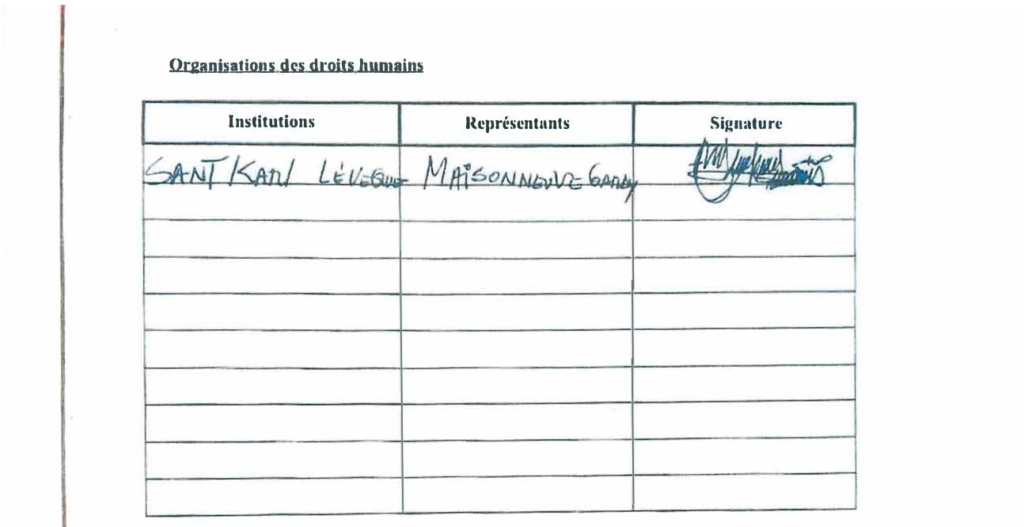 Organisations des droits humains
Institutions Représentants Signature
SANT KARL LÉVEQUE MAISONNEUVE GARDY